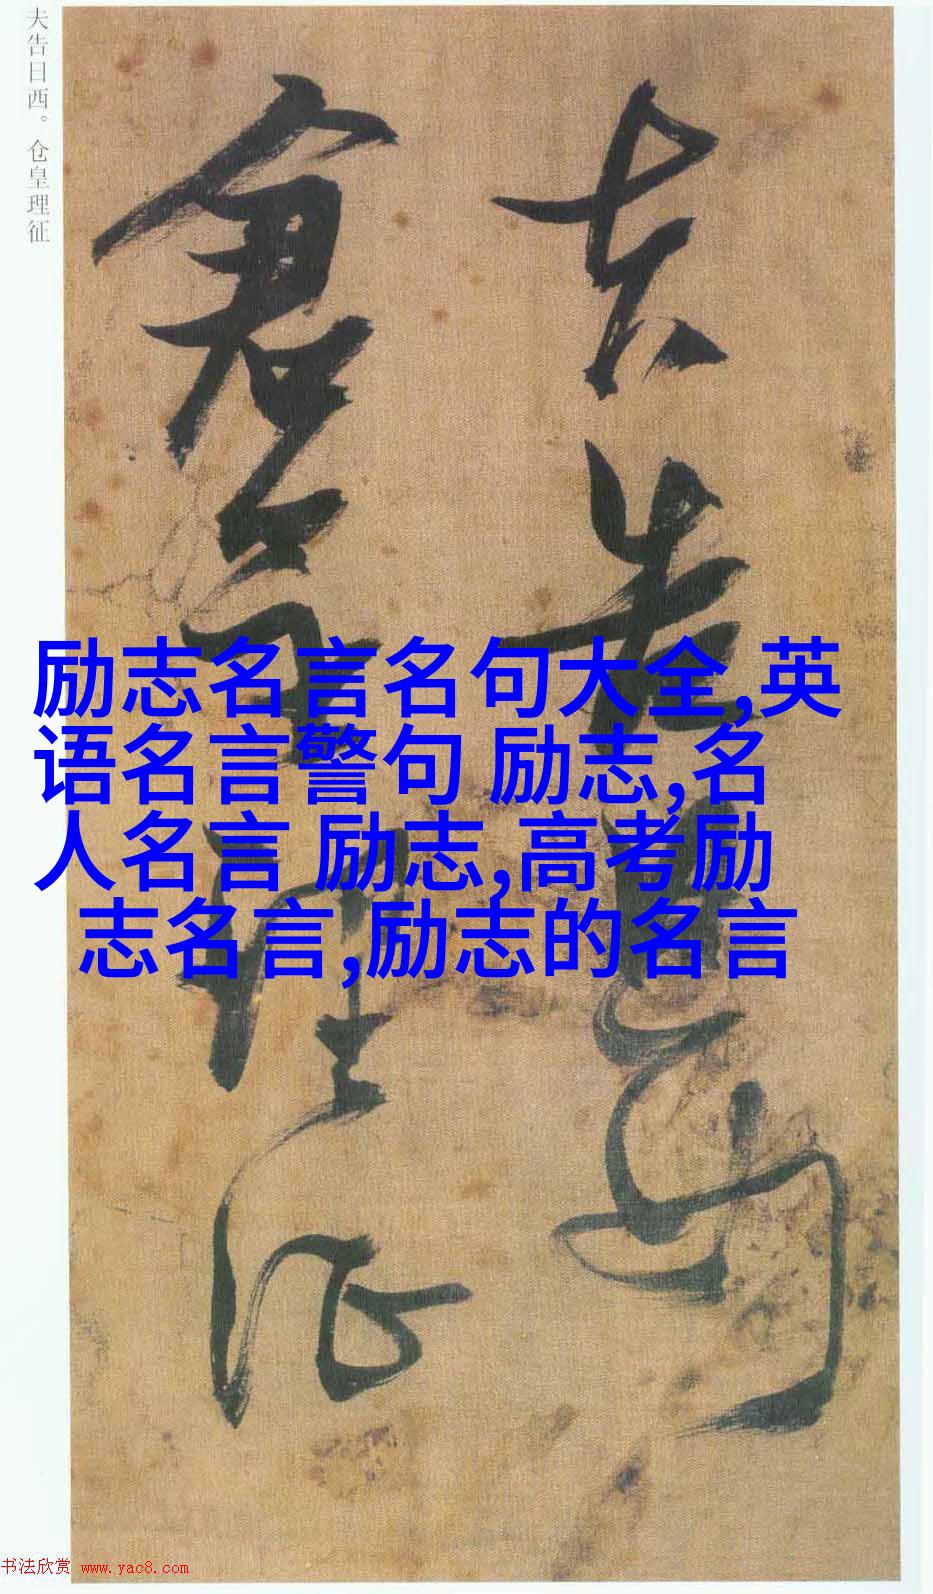 夫告日西。仓皇理征
夫告日西
仓皇理征
励志名言名句大全,英
语名言警句 励志,名
人名言 励志,高考励
志名言,励志的名言
书法欣赏 www.yac8.com